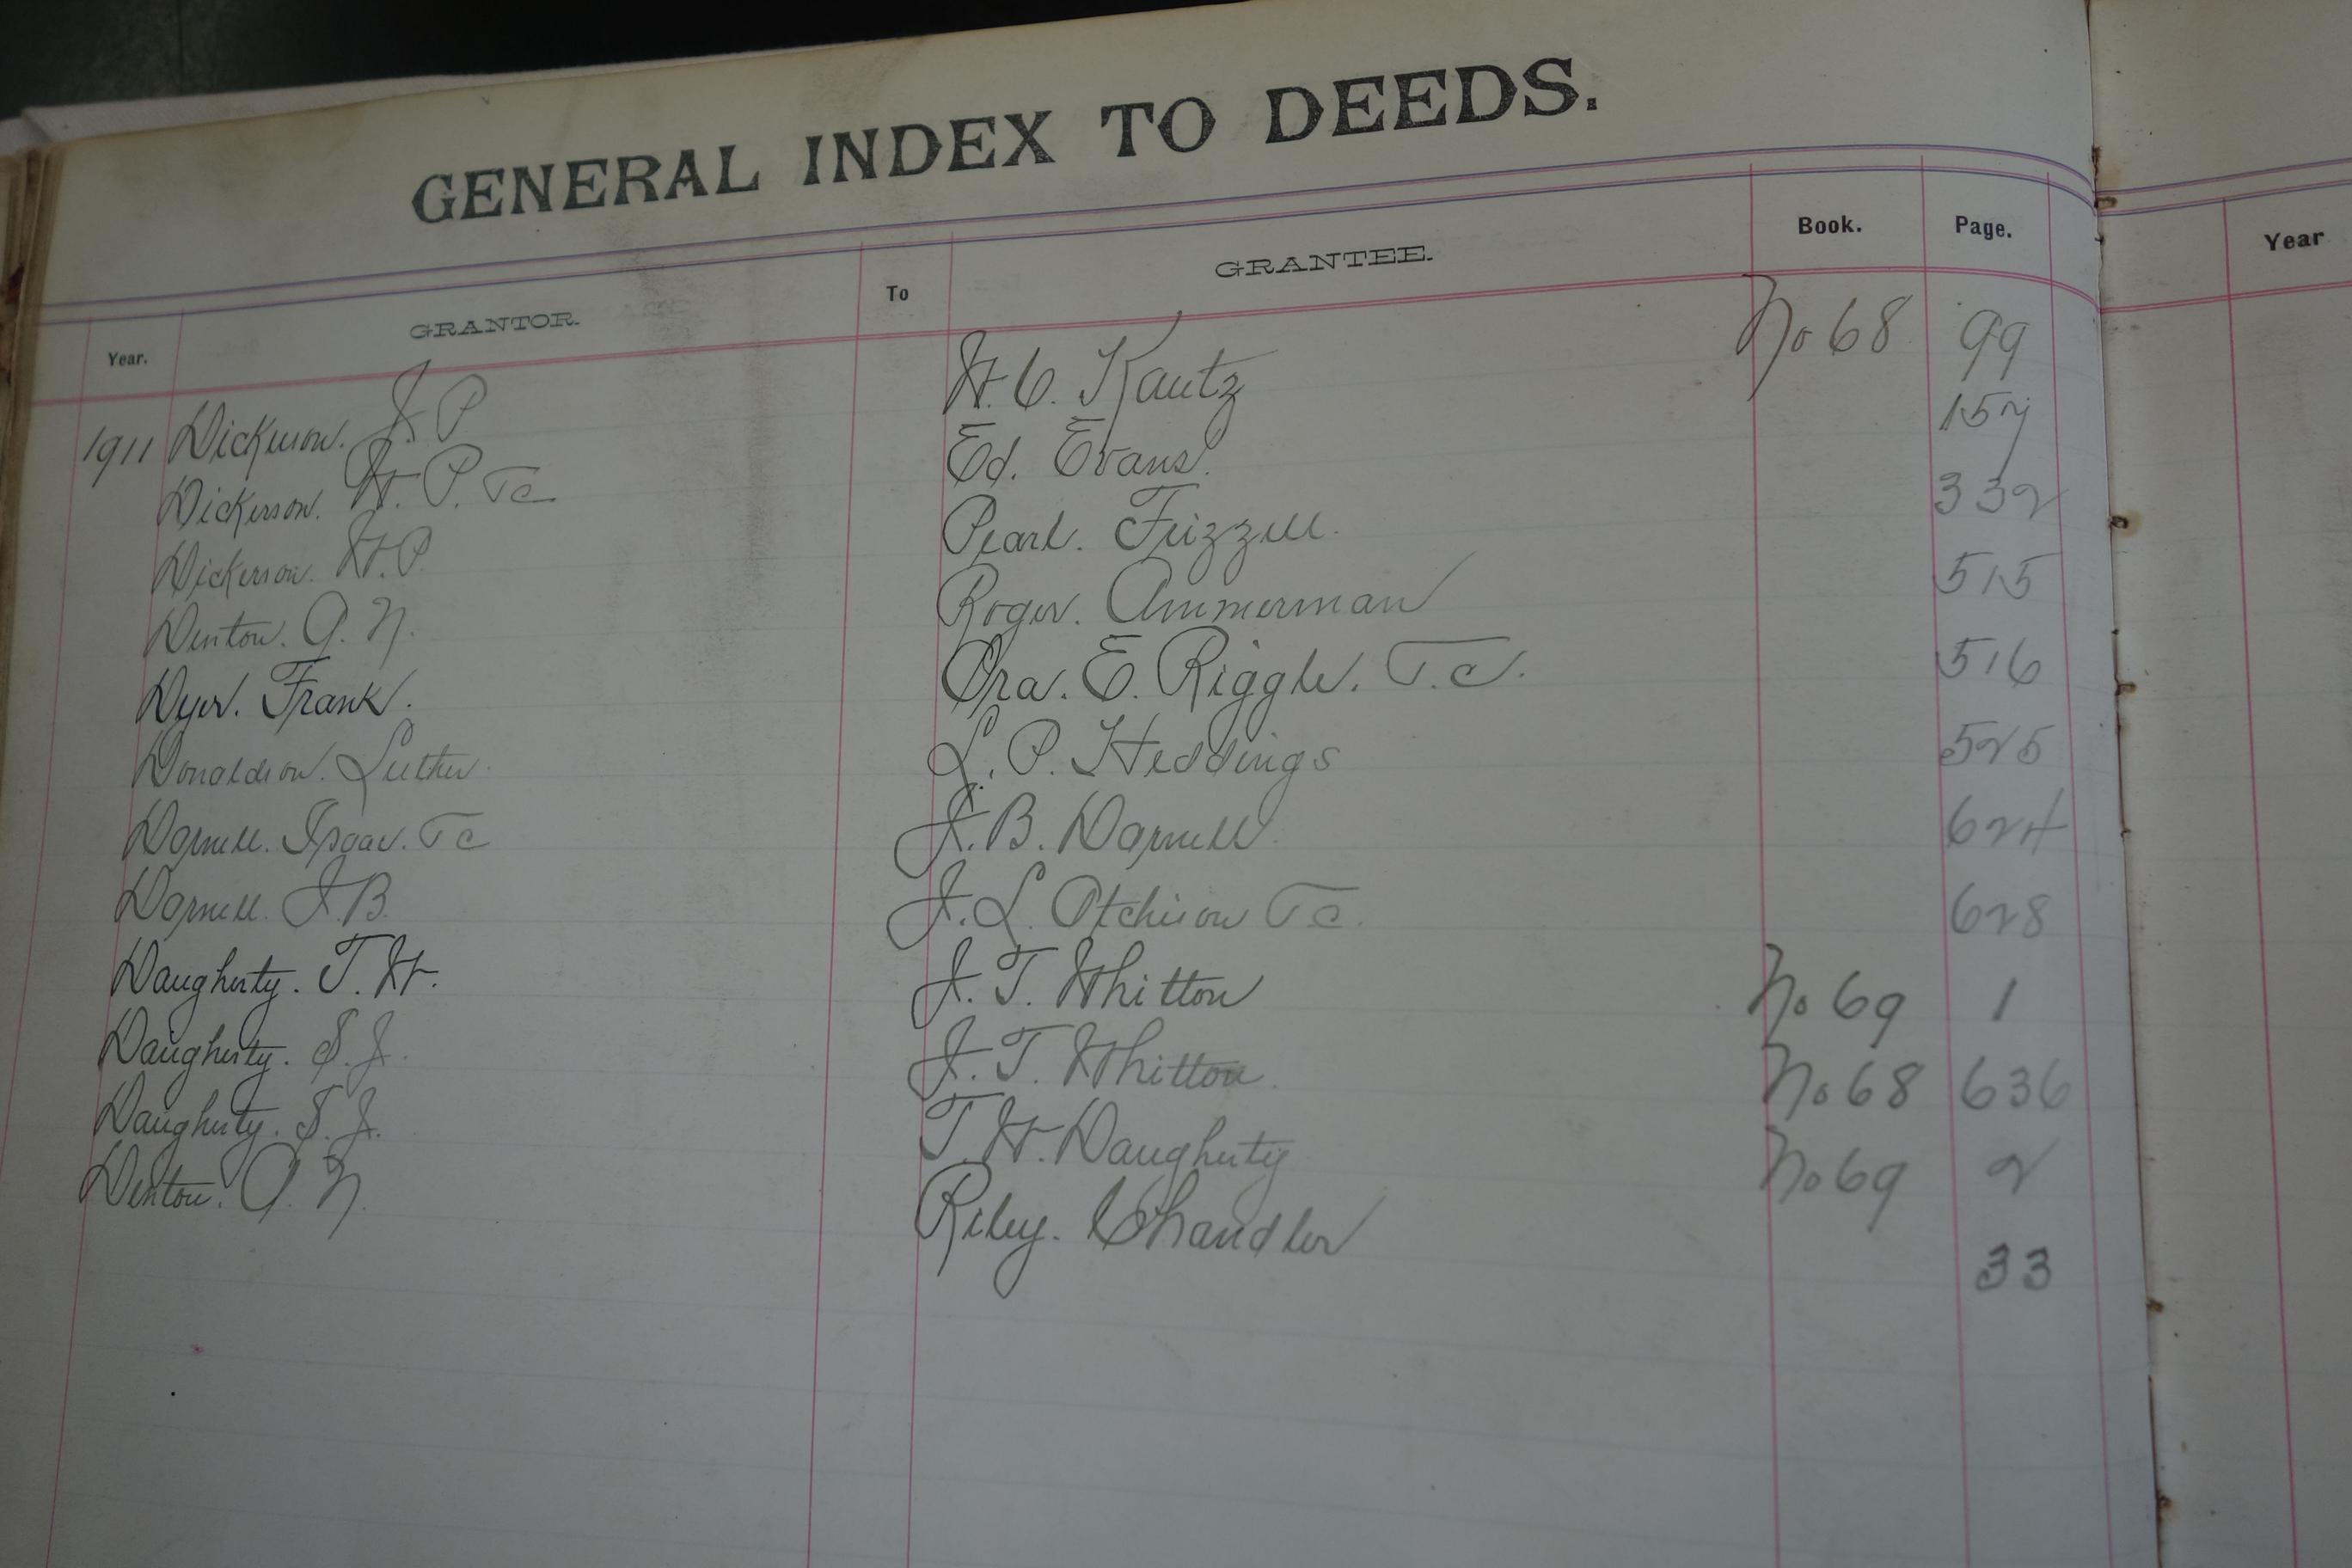 GENERAL INDEX TO DEEDS.
Year. GRANTOR. To GRANTEE. Book. Page.
1911 Dickerson. J. P W. C. Kautz No 68 99
Dickerson. W. P. Tc Ed. Evans. 157
Dickerson. W. P. Pearl. Frizzell. 332
Denton. A. N. Roger. Ammerman 515
Dyer. Frank. Ora. E. Riggle. T.c. 516
Donaldson. Luther. L. P. Heddings 525
Darnell. Isaac. Tc J. B. Darnell. 624
Darnell. J. B. J. L. Atchison Tc. 628
Daugherty. T. W. J. T. Whitton No 69 1
Daugherty. S. J. J. T. Whitton. No 68 636
Daugherty. S. J. T. W. Daugherty No 69 2
Denton. A. N. Riley. Chandler 33
Year